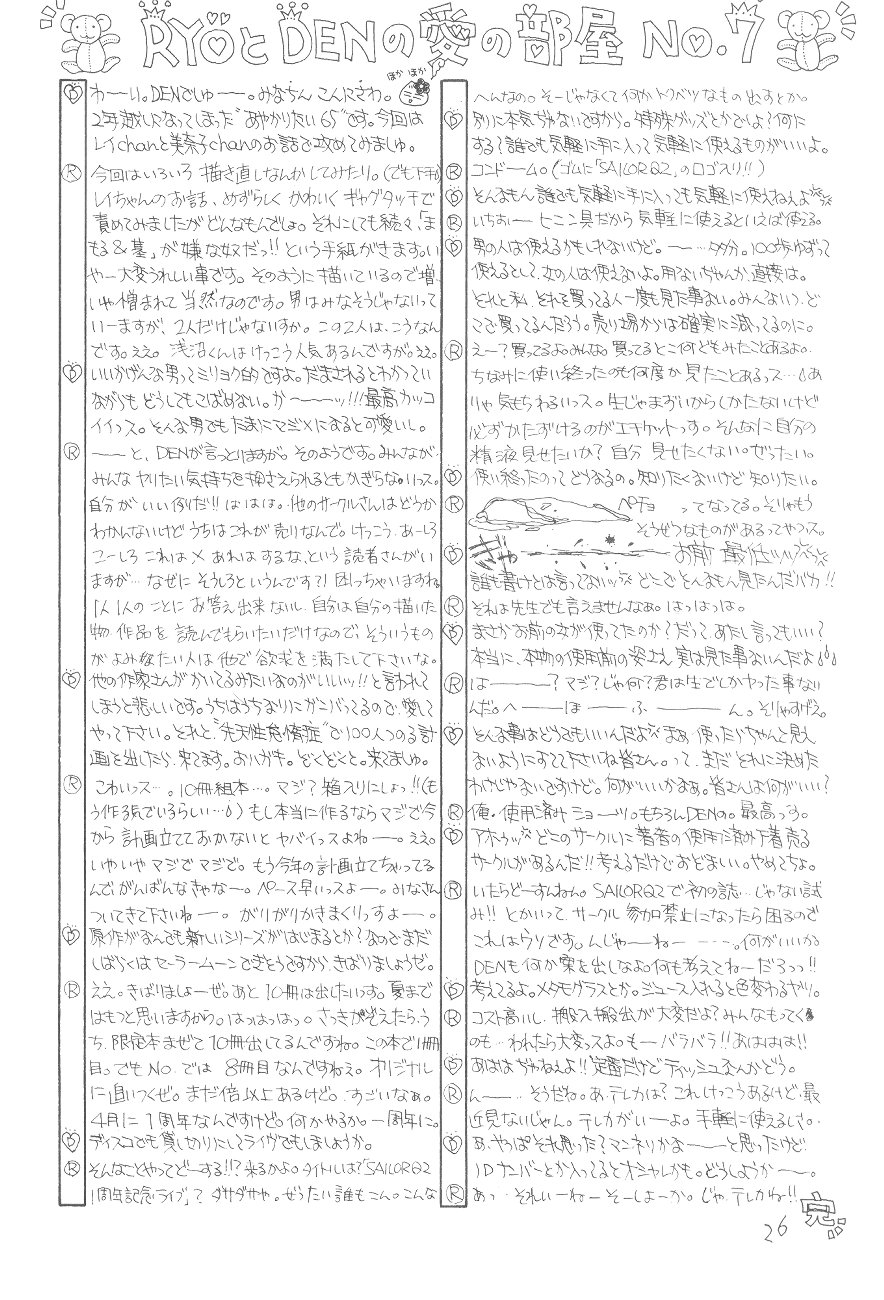 RYOとDENの愛の部屋 No.7
ほかほか
D わーい。DENでしゅー。みなちん こんにさわ。
2年越しになってしまった"あやかりたい65"です。今回は
レイchanと美奈子chanのお話で攻めてみましゅ。
R 今回はいろいろ 描き直しなんかしてみたり。(でも下手)
レイちゃんのお話、めずらしく かわいく ギャグタッチで
責めてみましたが どんなもんでしょ。それにしても続々、「ま
もる&墓」が嫌な奴だっ!! という手紙がきます。い
やー大変うれしい事です。そのように描いているので増、
いや憎まれて 当然なのです。男はみなそうじゃないって
いーますが、2人だけじゃないすか。この2人は、こうなん
です。ええ。浅沼くんはけっこう人気あるんですが。ええ。
D いいかげんな男ってミリョク的ですよ。だまされるとわかってい
ながらも どうしてもこばめない。が〜〜ッ!!!最高カッコ
イイっス。そんな男でもたまにマジメになると可愛いし。
R ――と、DENが言っとりますが。そのようです。みんなが
みんな ヤりたい気持ちを押さえられるともかぎらないっス。
自分がいい例りだ!! ははは。他のサークルさんはどうか
わかんないけど うちはこれが売りなんで。けっこう、あーしろ
こーしろ これは× あれはするな、という読者さんがい
ますが… なぜに そうしろというんです?! 困っちゃいますね
1人1人のことに お答え出来ないし 自分は自分の描いた
物、作品を 読んでもらいたいだけなので、そういうもの
がよみたい人は他で欲求を満たして下さいな。
D 他の作家さんがかいてるみたいなのがいいッ!!と言われて
しまうと悲しいです。うちはうちなりにガンバってるので、愛して
やって下さい。それと"先天性怠惰症"で100人つのる計
画を出したら、来てます。おハガキ。どくどくと。来てましゅ。
R こわいっス…。10冊組本…。マジ?箱入りにしょっ!!(も
う作る気でいるらしい…) もし本当に作るならマジで今
から 計画立てておかないと ヤバイっスよねー。ええ。
いやいや マジで マジで。もう今年の計画立てちゃってる
んで がんばんなきゃなー。ペース早いっスよー。みなさん
ついてきて下さいねー。がりがりかきまくりっすよー。
D 原作がなんでも新しいシリーズがはじまるとか?なのでまだ
しばらくはセーラームーンで きそうですから、きばりましょうぜ。
R ええ。きばりましょーぜ。あと10冊は出したいっす。夏まで
はもつと思いますから。はっはっはっ。さっきかぞえたら、う
ち、限定本まぜて10冊出してるんですね。この本で11冊
目。でもNo.では 8冊目なんですねぇ。オリジナル
に追いつくぜ。まだ倍以上あるけど。すごいなぁ。
4月に1周年なんですけど。何かやるか。一周年に。
D ディスコでも貸しきりにしてライヴでもしましょうか。
R そんなことやってどーする!!?来るかよ。タイトルは?「SAILORQ2
1周年記念ライブ」? ダサダサや。ぜったい誰もこん。こんな
へんなの。そーじゃなくて何かトクベツなもの出すとか。
D 別に本気ぢゃないですから。特殊グッズとかでしょ?何に
する?誰でも気軽に手に入って気軽に使えるものがいいよ。
R コンドーム。(ゴムに「SAILORQ2」のロゴ入り!!)
D そんなもん 誰でも気軽に手に入っても気軽に使えねえよ
R いちおー ヒニン具だから 気軽に使えるといえば使える。
D 男の人は使えるかもしれないけど。〜…多分。100歩ゆずって
使えるとして、女の人は使えないよ。用ないぢゃんか、直接は。
それと私 それを買ってる人一度も見た事ない。みんないつ、ど
こで買ってるんだろう。売り場からは確実に減ってるのに。
R えー?買ってるよ。みんな。買ってるとこ何どもみたことあるよ。
ちなみに使い終ったのも何度か 見たことあるっス… あ
りゃ気もちわるいっス。生じゃまずいからしかたないけど
必ずかたずけるのがエチケットっす。そんなに自分の
精液見せたいか?自分 見せたくない。ぜったい。
D 使い終ったのってどうなるの。知りたくないけど知りたい。
R ペチョ ってなってる。そりゃもう
そうぜつなものがあるってやつっス。
D ぎゃ お前 最低ッッ
誰も書けとは言ってないッ どこで そんなもん見たんだバカ!!
R それは先生でも言えませんなぁ。はっはっは。
D まさかお前の女が使ってたのか?だって、あたし言ってもいい?
本当に、本物の使用前の姿さえ 実は見た事ないんだよ
R は―――?マジ?じゃ何?君は生でしかヤった事ない
んだ。へ――ほ――ふ――ん。そりゃすげえ。
D そんな事はどうでもいいんだよ まぁ使ったらちゃんと見え
ないようにすてて下さいね皆さん。って、まだ それに決めた
わけじゃないですけど。何がいいかなぁ。皆さんは何がいい?
R 俺・使用済み ショーツ。もちろんDENの。最高っす。
D アホゥッ どこのサークルに著者の使用済み下着売る
サークルがあるんだ!!考えるだけでおどましい。やめてちょ。
R いたらどーすんねん。SAILORQ2で初の誌…じゃない試
み!! とかいって サークル 参加禁止になったら困るので
これはウソです。んじゃーねー ----。何がいいか
DENも何か案を出しなよ。何も考えてねーだろっっ!!
D 考えてるよ。メタモグラスとか。ジュース入れると色変わるヤツ。
R コスト高いし、搬入搬出が大変だよ?みんなもってく
のも…われたら大変っスよ。もーバラバラ!!あははは!!
D あははぢゃねえよ!!定番だけどティッシュなんかどう。
R んー― そうだね。あ、テレカは?これけっこうあるけど、最
近見ないじゃん。テレカがいーよ。手軽に使えるしさ。
D あ、やっぱそれ思った?マンネリかなー―と思ったけど、
IDナンバーとか入ってるとオシャレかも。どうしようか――。
R あっ…それいーねー そーしよーか。じゃ、テレカね!!
完
26